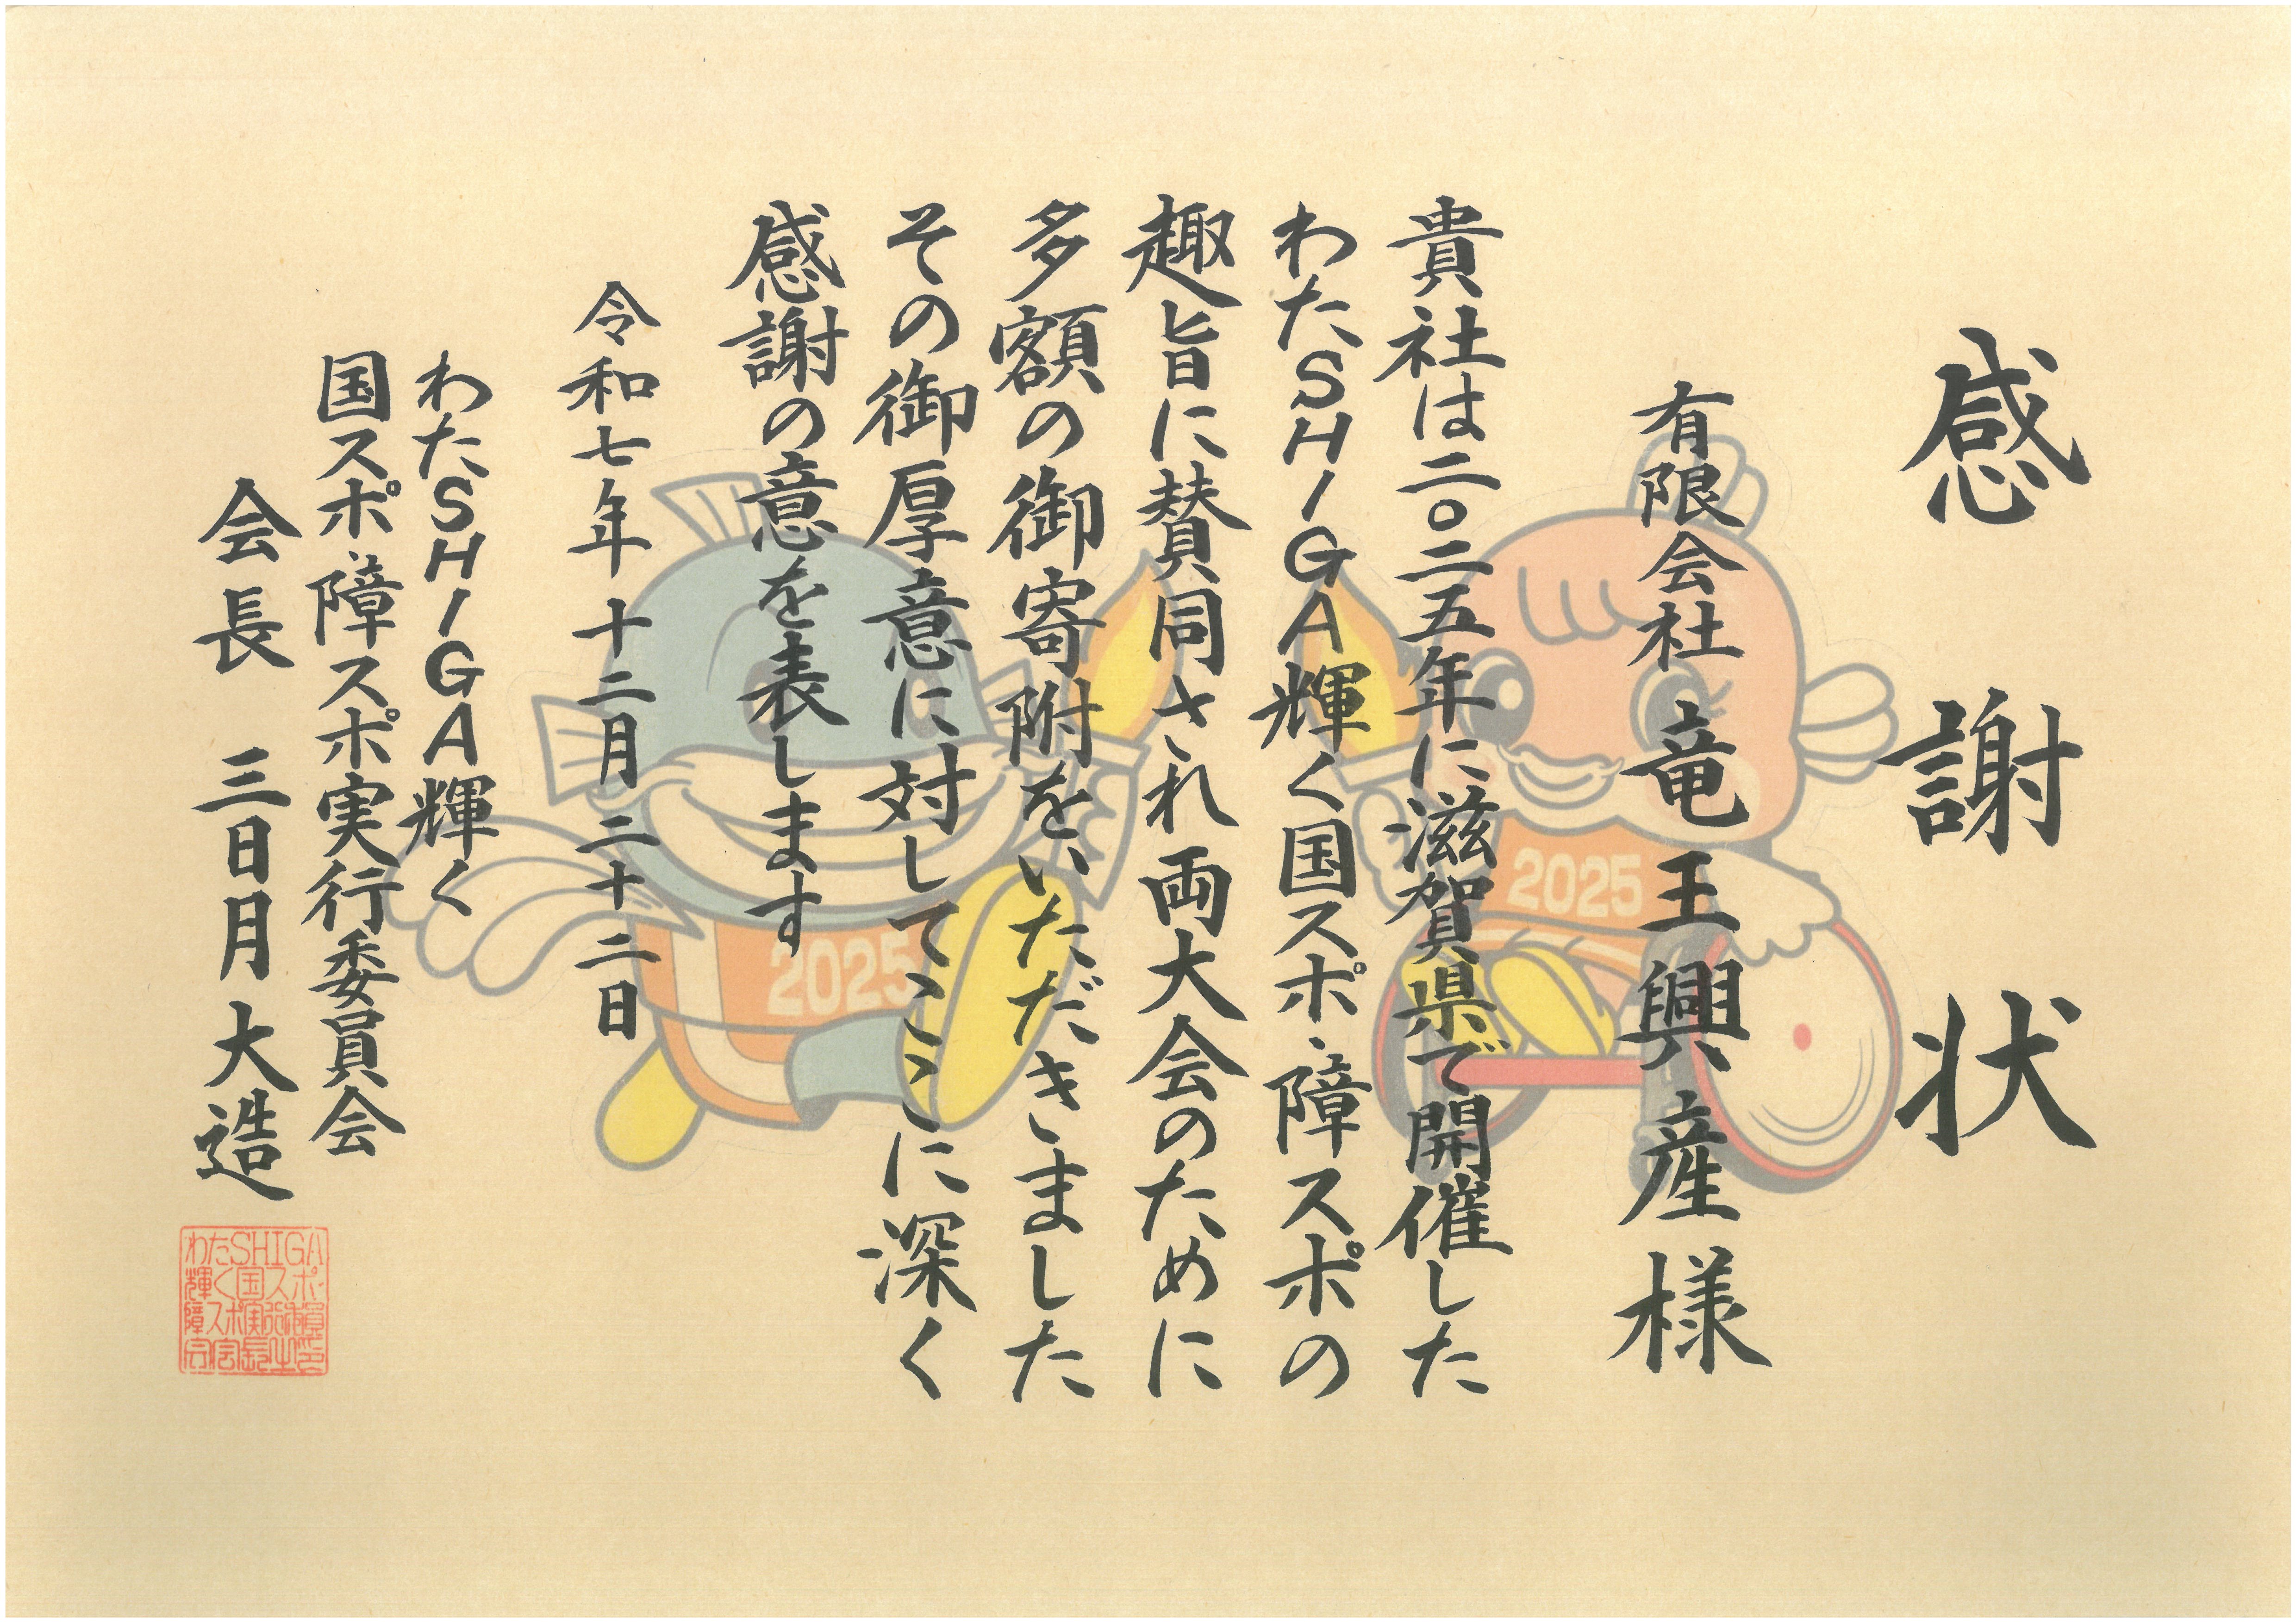 感謝状
有限会社 竜王興産様
貴社は二〇二五年に滋賀県で開催した
わたSHIGA輝く国スポ・障スポの
趣旨に賛同され両大会のために
多額の御寄附をいただきました
その御厚意に対してここに深く
感謝の意を表します
令和七年十二月二十二日
わたSHIGA輝く
国スポ・障スポ実行委員会
会長 三日月大造
わたSHIGA
輝く国スポ・
2025
2025